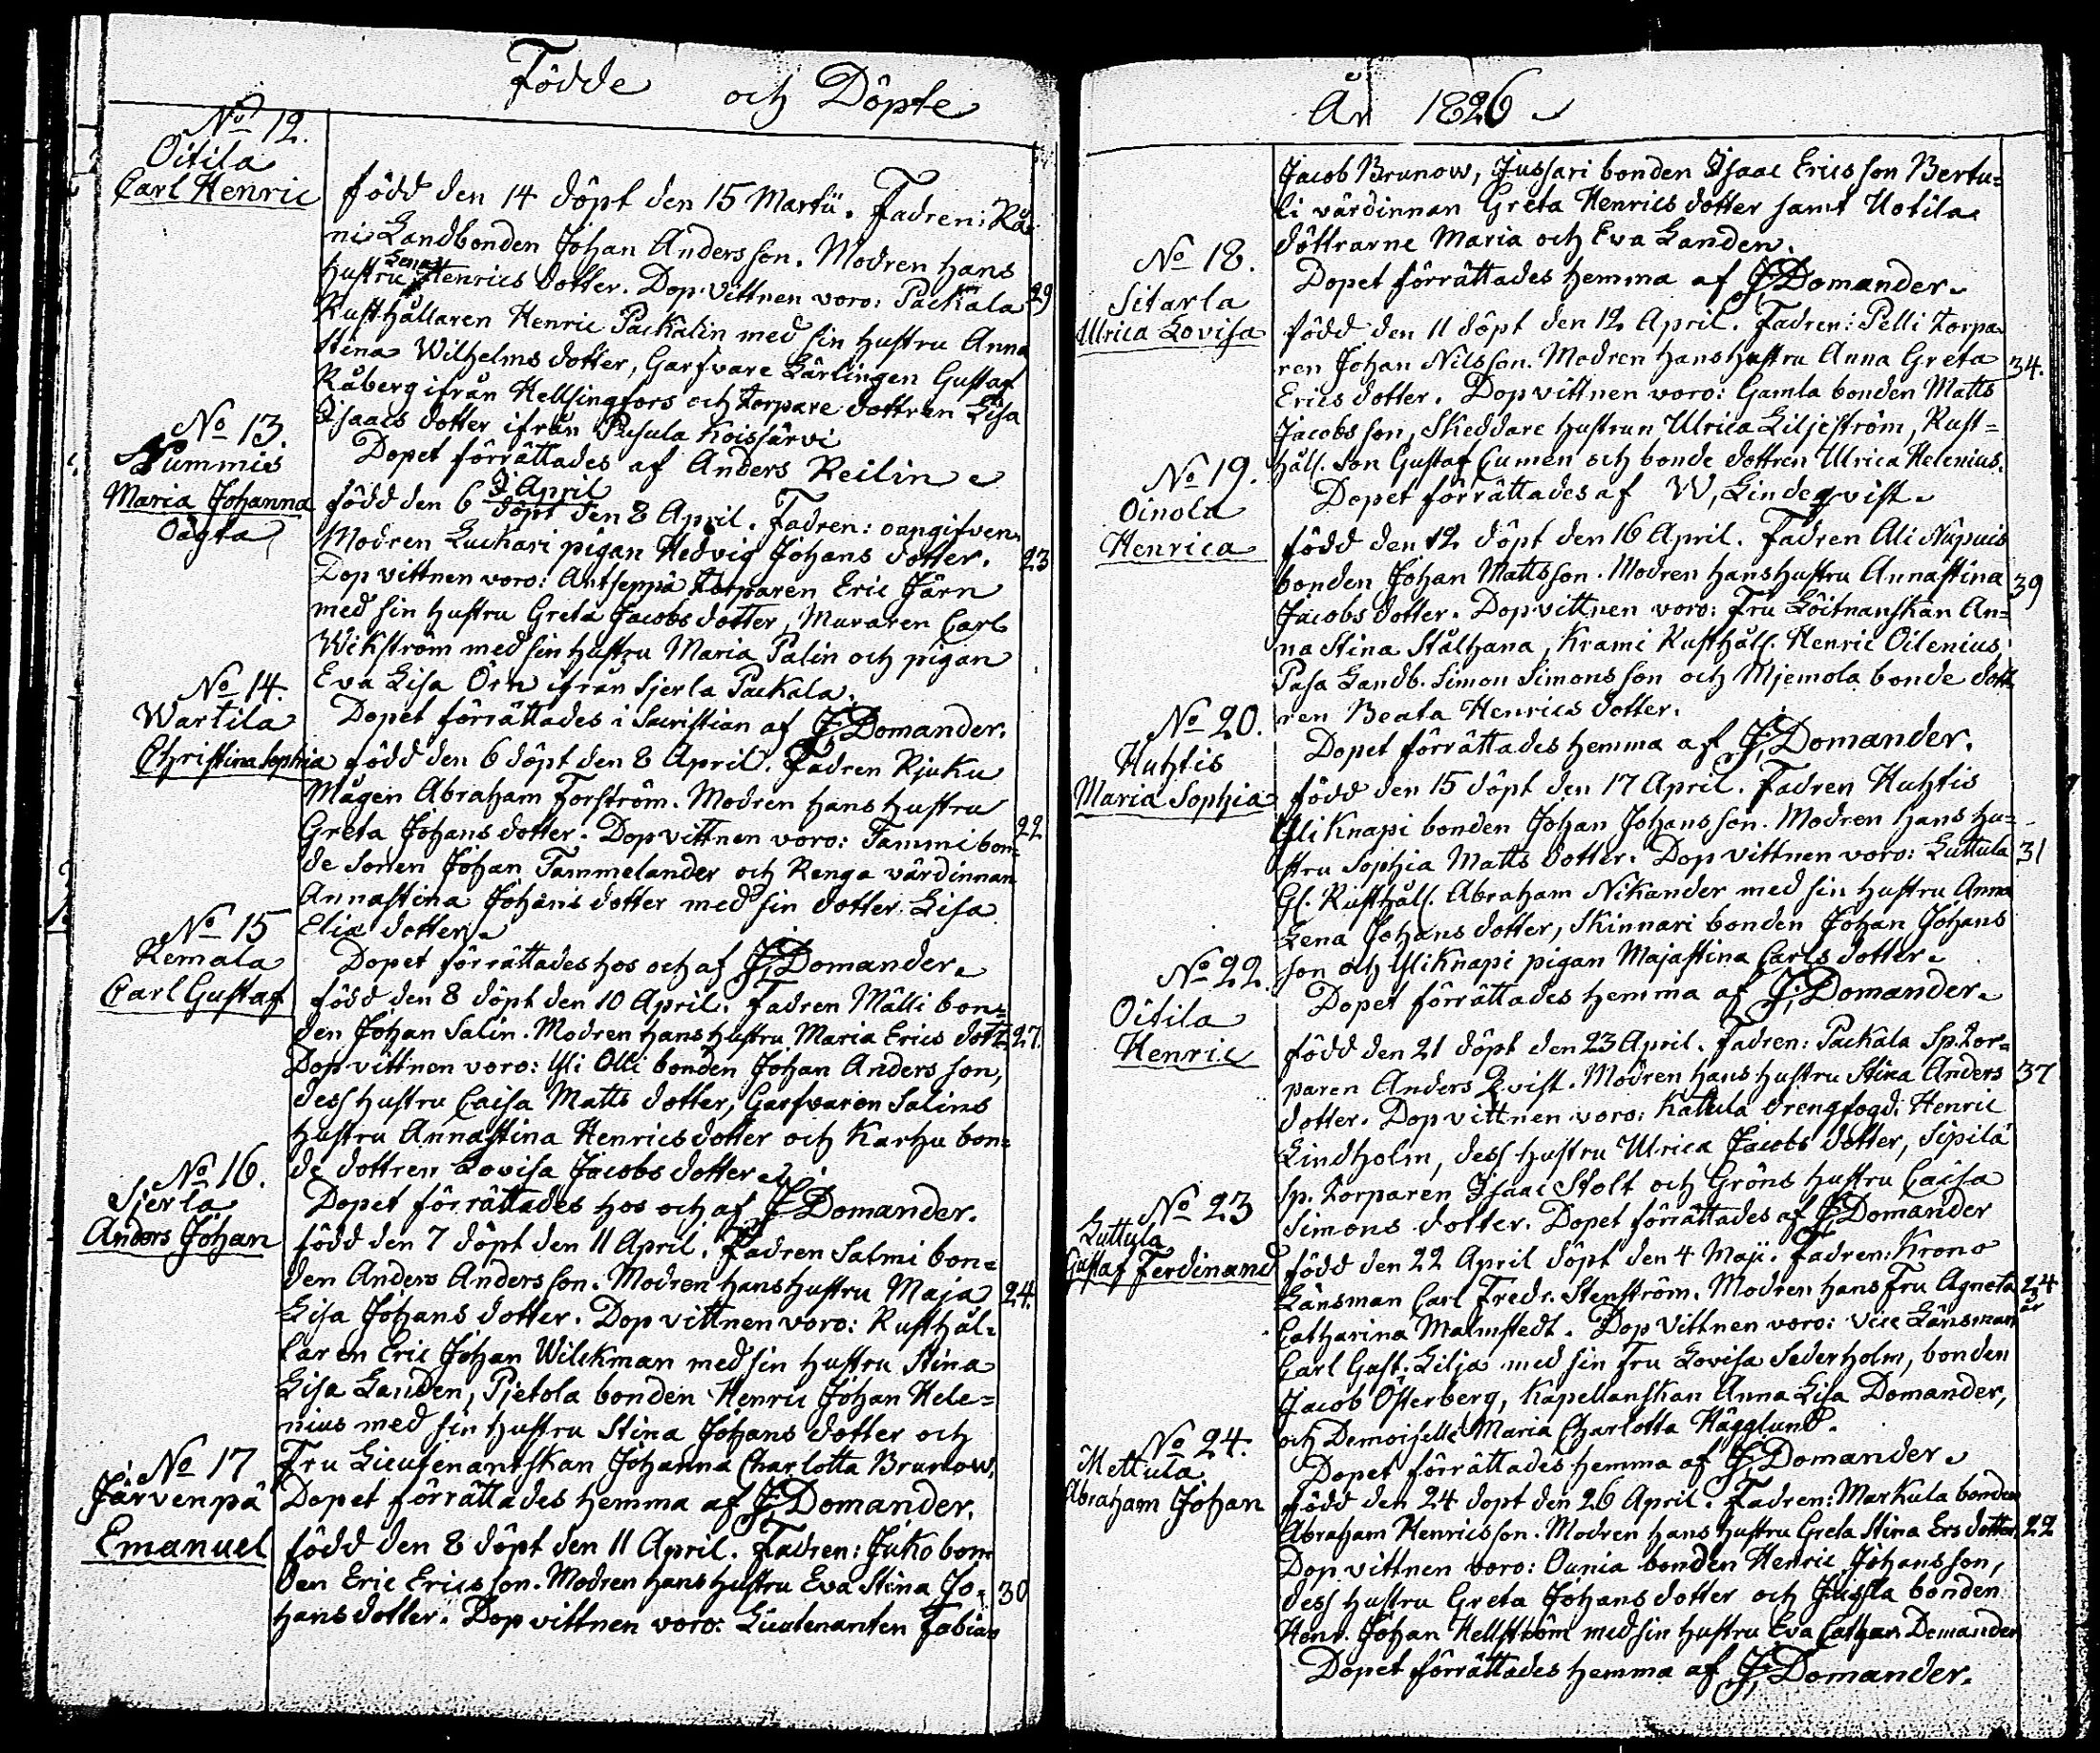 Födde och Döpte
No 12.
Oitila
Carl Henric
född den 14 döpt den 15 Martii. Fadren: Rå=
ni Landbonden Johan Andersson. Modren hans
Lena
hustru Henrics dotter. Dop vittnen voro: Packala
29
Rusthållaren Henric Packalin med sin hustru Anna
Stina Wilhelms dotter, Garfvare Lärlingen Gustaf
Råberg ifrån Helsingfors och torpare dottren Lisa
Isaacs dotter ifrån Pusula Koisjärvi
Dopet förrättades af Anders Reilin
No 13.
Nummis
Maria Johanna
Oägta
April
född den 6 döpt den 8 April. Fadren: oangifven.
Modren Luchari pigan Hedvig Johans dotter.
23
Dop vittnen voro: Antseppä Torparen Eric Järn
med sin hustru Greta Jacobs dotter, Muraren Carl
Wikström med sin hustru Maria Palin och pigan
Eva Lisa Örn ifrån Sjerla Packala.
Dopet förrättades i Sacristian af J. Domander.
No 14.
Wartila
Christina Sophia
född den 6 döpt den 8 April. Fadren Rjuku
Mågen Abraham Forström. Modren hans hustru
Greta Johans dotter. Dop vittnen voro: Tammi bon=
22
de sonen Johan Tammelander och Renga värdinnan
Annastina Johans dotter med sin dotter Lisa
Elias dotter.
Dopet förrättades hos och af J. Domander.
No 15
Remala
Carl Gustaf
född den 8 döpt den 10 April. Fadren Mälli bon=
den Johan Salin. Modren hans hustru Maria Erics dott.
27.
Dop vittnen voro: Yli Olli bonden Johan Andersson,
dess hustru Caisa Matts dotter, Garfvaren Salins
hustru Annastina Henrics dotter och Karhu bon=
de dottren Lovisa Jacobs dotter.
Dopet förrättades hos och af J. Domander.
No 16.
Sjerla
Anders Johan
född den 7 döpt den 11 April. Fadren Salmi bon=
den Anders Andersson. Modren hans hustru Maja
24.
Lisa Johans dotter. Dop vittnen voro: Rusthål=
laren Eric Johan Wilckman med sin hustru Stina
Lisa Landen, Pjetola bonden Henric Johan Hele=
nius med sin hustru Stina Johans dotter och
Fru Lieutenantskan Johanna Charlotta Brunow.
Dopet förrättades hemma af J. Domander.
No 17
Järvenpä
Emanuel
född den 8 döpt den 11 April. Fadren: Juko bon=
den Eric Ericsson. Modren hans hustru Eva Stina Jo=
30
hans dotter. Dop vittnen voro: Lieutenanten Fabian
År 1826
Jacob Brunow, Jussari bonden Isaac Ericsson Bertu=
li värdinnan Greta Henrics dotter samt Uotila
döttrarne Maria och Eva Landen.
Dopet förrättades hemma af J. Domander.
No 18.
Sitarla
Ulrica Lovisa
född den 11 döpt den 12 April. Fadren: Pelli torpa
ren Johan Nilsson. Modren hans hustru Anna Greta
34.
Erics dotter. Dop vittnen voro: Gamla bonden Matts
Jacobsson, Skeddare hustrun Ulrica Liljeström, Rust=
håll. son Gustaf Cumen och bonde dottren Ulrica Helenius.
Dopet förrättades af W. Lindeqvist.
No 19.
Oinola
Henrica
född den 12 döpt den 16 April. Fadren Ali Nupuis
bonden Johan Mattsson. Modren hans hustru Annastina
39
Jacobs dotter. Dop vittnen voro: Fru Löitnanskan An=
na Stina Stålhana, Krami Rusthåll. Henric Oilenius,
Pasa Landb. Simon Simonsson och Mjemola bonde dott
ren Beata Henrics dotter.
Dopet förrättades hemma af J. Domander.
No 20.
Huhtis
Maria Sophia
född den 15 döpt den 17 April. Fadren Huhtis
Yli Knapi bonden Johan Johansson. Modren hans hu=
stru Sophia Matts dotter. Dop vittnen voro: Luttula
31
Gl. Rusthåll. Abraham Nikander med sin hustru Anna
Lena Johans dotter, Skinnari bonden Johan Johans
son och Yli Knapi pigan Majastina Carls dotter.
Dopet förrättades hemma af J. Domander.
No 22.
Oitila
Henric
född den 21 döpt den 23 April. Fadren: Packala Sp. tor=
paren Anders Qvist. Modren hans hustru Stina Anders
37
dotter. Dop vittnen voro: Kattula drengfogd. Henric
Lindholm, dess hustru Ulrica Jacobs dotter, Sipilä
Sp. torparen Isaac Stolt och Gröns hustru Caisa
Simons dotter. Dopet förrättades af J. Domander
No 23
Luttula
Gustaf Ferdinand
född den 22 April döpt den 4 Maji. Fadren: Krono
Länsman Carl Fredr. Stenström. Modren hans Fru Agneta
24
år
Catharina Malmstedt. Dop vittnen voro: Vice Länsman
Carl Gust. Lilja med sin Fru Lovisa Sederholm, bonden
Jacob Österberg, Kapellanskan Anna Lisa Domander,
och Demoiselle Maria Charlotta Hägglund.
Dopet förrättades hemma af J. Domander.
No 24.
Mettula
Abraham Johan
född den 24 döpt den 26 April. Fadren: Markula bonden
Abraham Henricsson. Modren hans hustru Greta Stina Ers dotter
22
Dop vittnen voro: Ounia bonden Henric Johansson,
dess hustru Greta Johans dotter och Jussla bonden
Henr. Johan Hellström med sin hustru Eva Cathar. Domander
Dopet förrättades hemma af J. Domander.